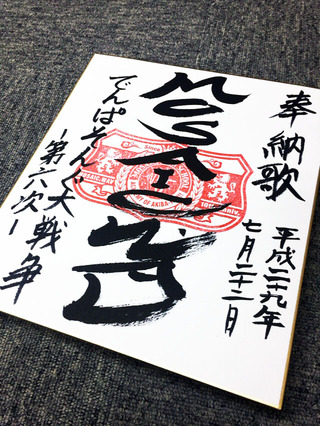 奉納歌
平成二十九年
七月二十二日
MOSAIC.WAV
でんぱそんぐ大戦争
-第六次-
Since
MOSAIC.WAV
OF AKIBA
10th Anniv.